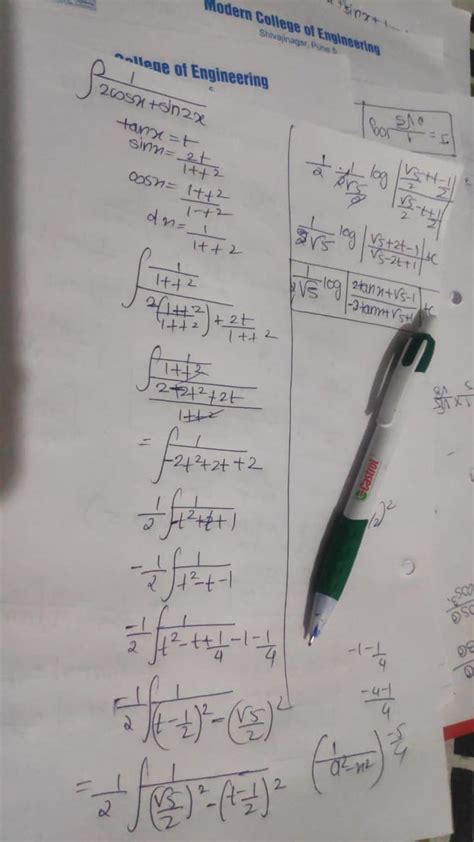 Modern College of Engineering
Shivajinagar, Pune 5
College of Engineering
∫ 1/(2cosx+sin2x)
tanx=t
sinx= 2t/(1+t²)
cosx= (1+t²)/(1-t²)
dx= 1/(1+t²)
∫ (1/(1+t²))/(2((1+t²)/(1+t²))+2t/(1+t²))
∫ (1/(1+t²))/((2-2t²+2t)/(1+t²))
= ∫ 1/(-2t²+2t+2)
1/2 ∫ 1/(-t²+t+1)
-1/2 ∫ 1/(t²-t-1)
-1/2 ∫ 1/(t²-t+1/4-1-1/4)
-1/2 ∫ 1/((t-1/2)²-(√5/2)²)
= 1/2 ∫ 1/((√5/2)²-(t-1/2)²)
(1/(a²-x²))
-1-1/4
(-4-1)/4
-5/4
1/2 · 1/(2√5/2) log |(√5/2+t-1/2)/(√5/2-t+1/2)|
1/(2√5) log |(√5+2t-1)/(√5-2t+1)|+c
1/(2√5) log |(2tanx+√5-1)/(-2tanx+√5+1)|+c
Castrol